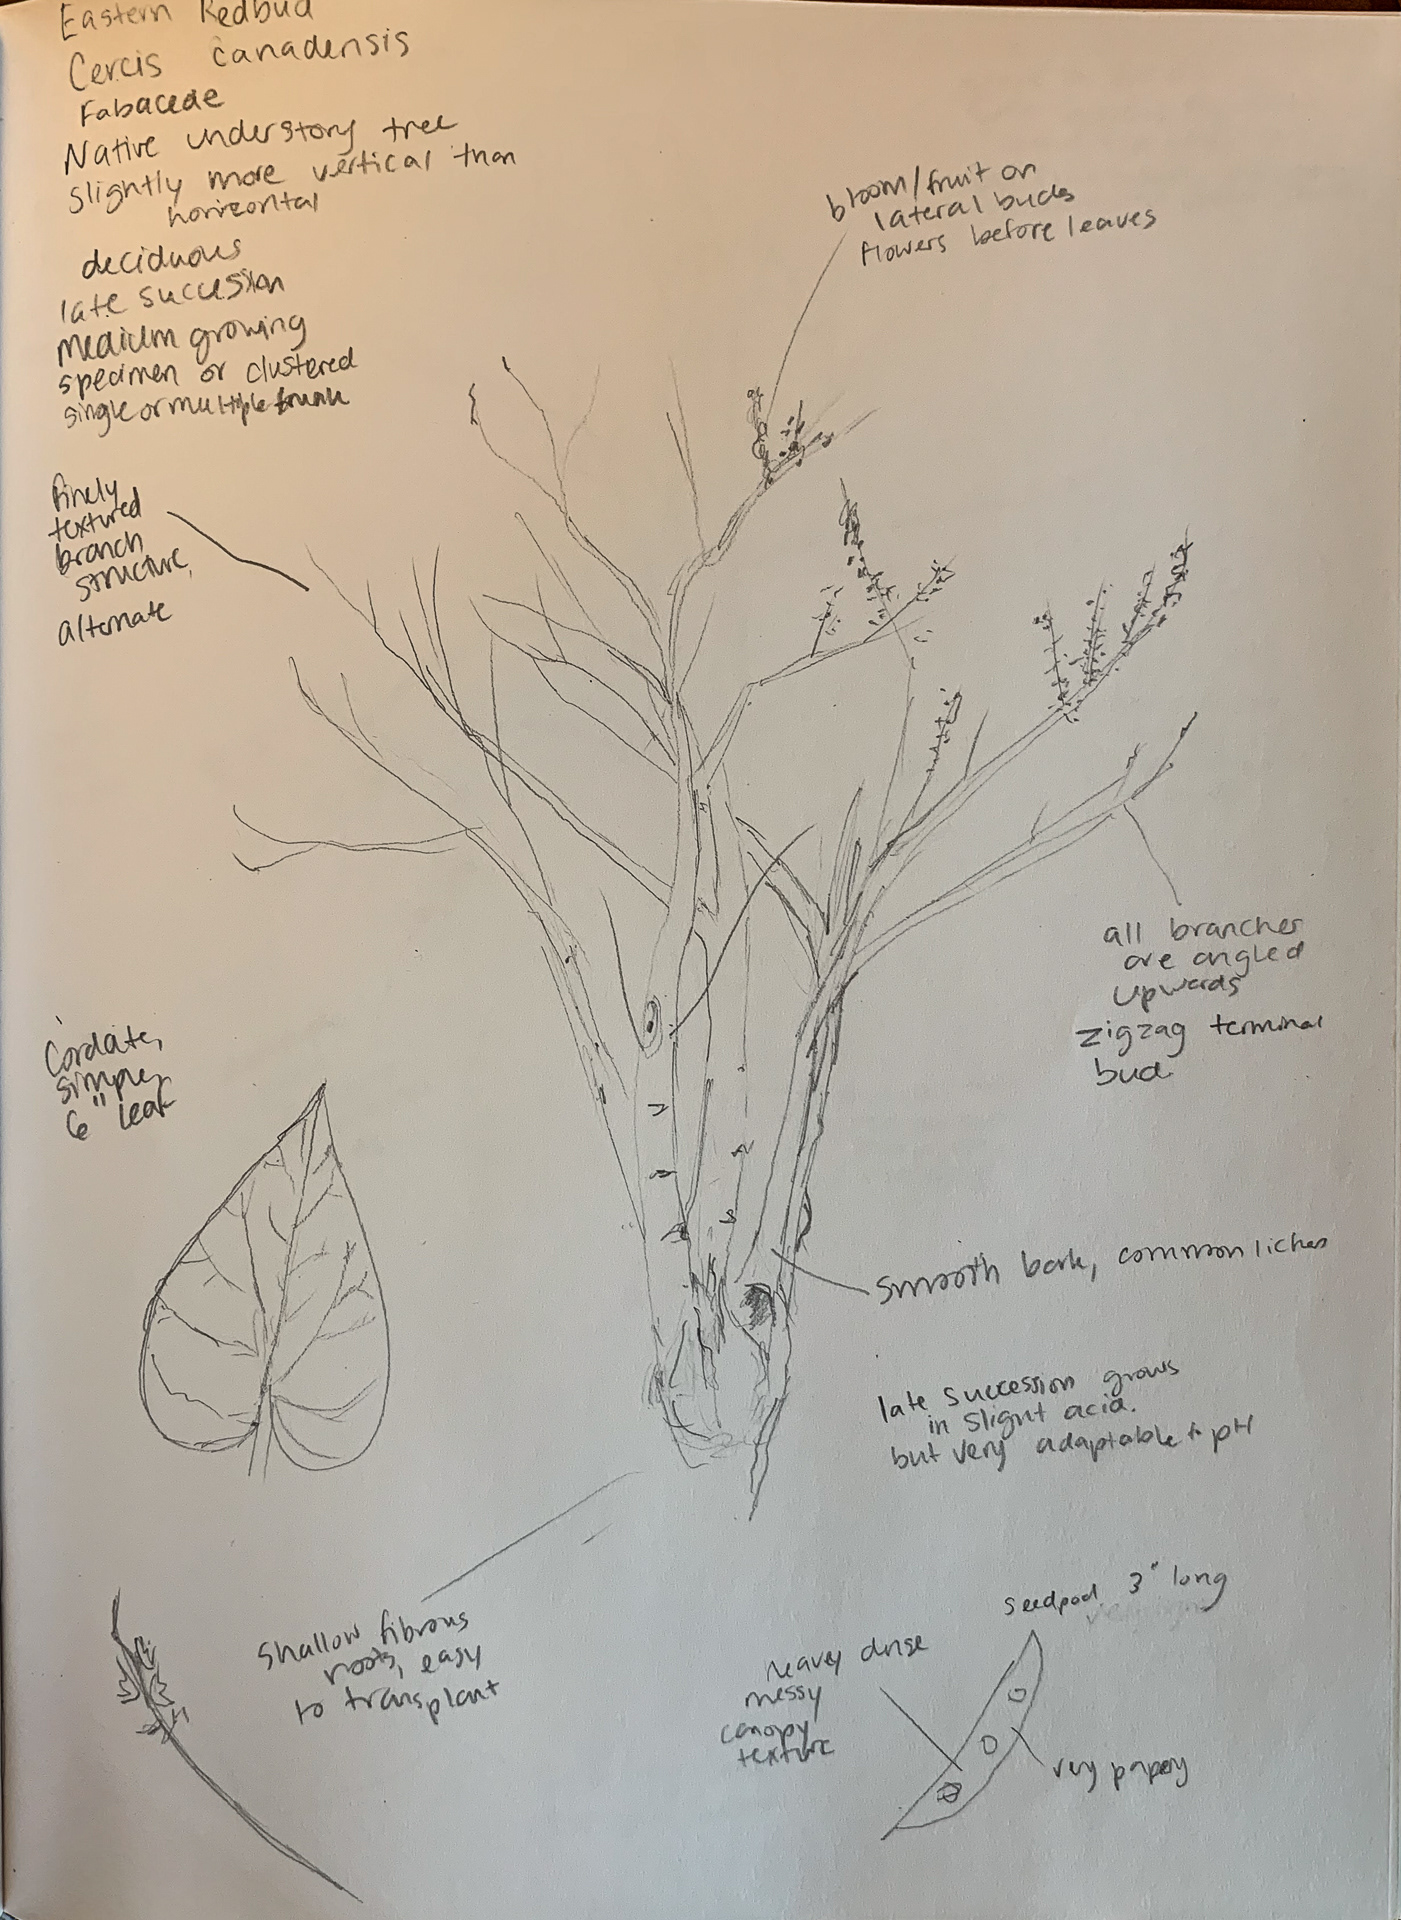 Eastern Redbud
Cercis canadensis
Fabaceae
Native understory tree
slightly more vertical than
horizontal
deciduous
late succesion
medium growing
specimen or clustered
single or multiple trunk
bloom/fruit on
lateral buds
flowers before leaves
finely
textured
branch
structure,
alternate
all branches
are angled
upwards
zigzag terminal
bud
Cordate,
simple,
6" leaf
smooth bark, common lichen
late succession grows
in slight acid.
but very adaptable to pH
shallow fibrous
roots, easy
to transplant
seedpod 3" long
heavy dense
messy
canopy
texture
very papery